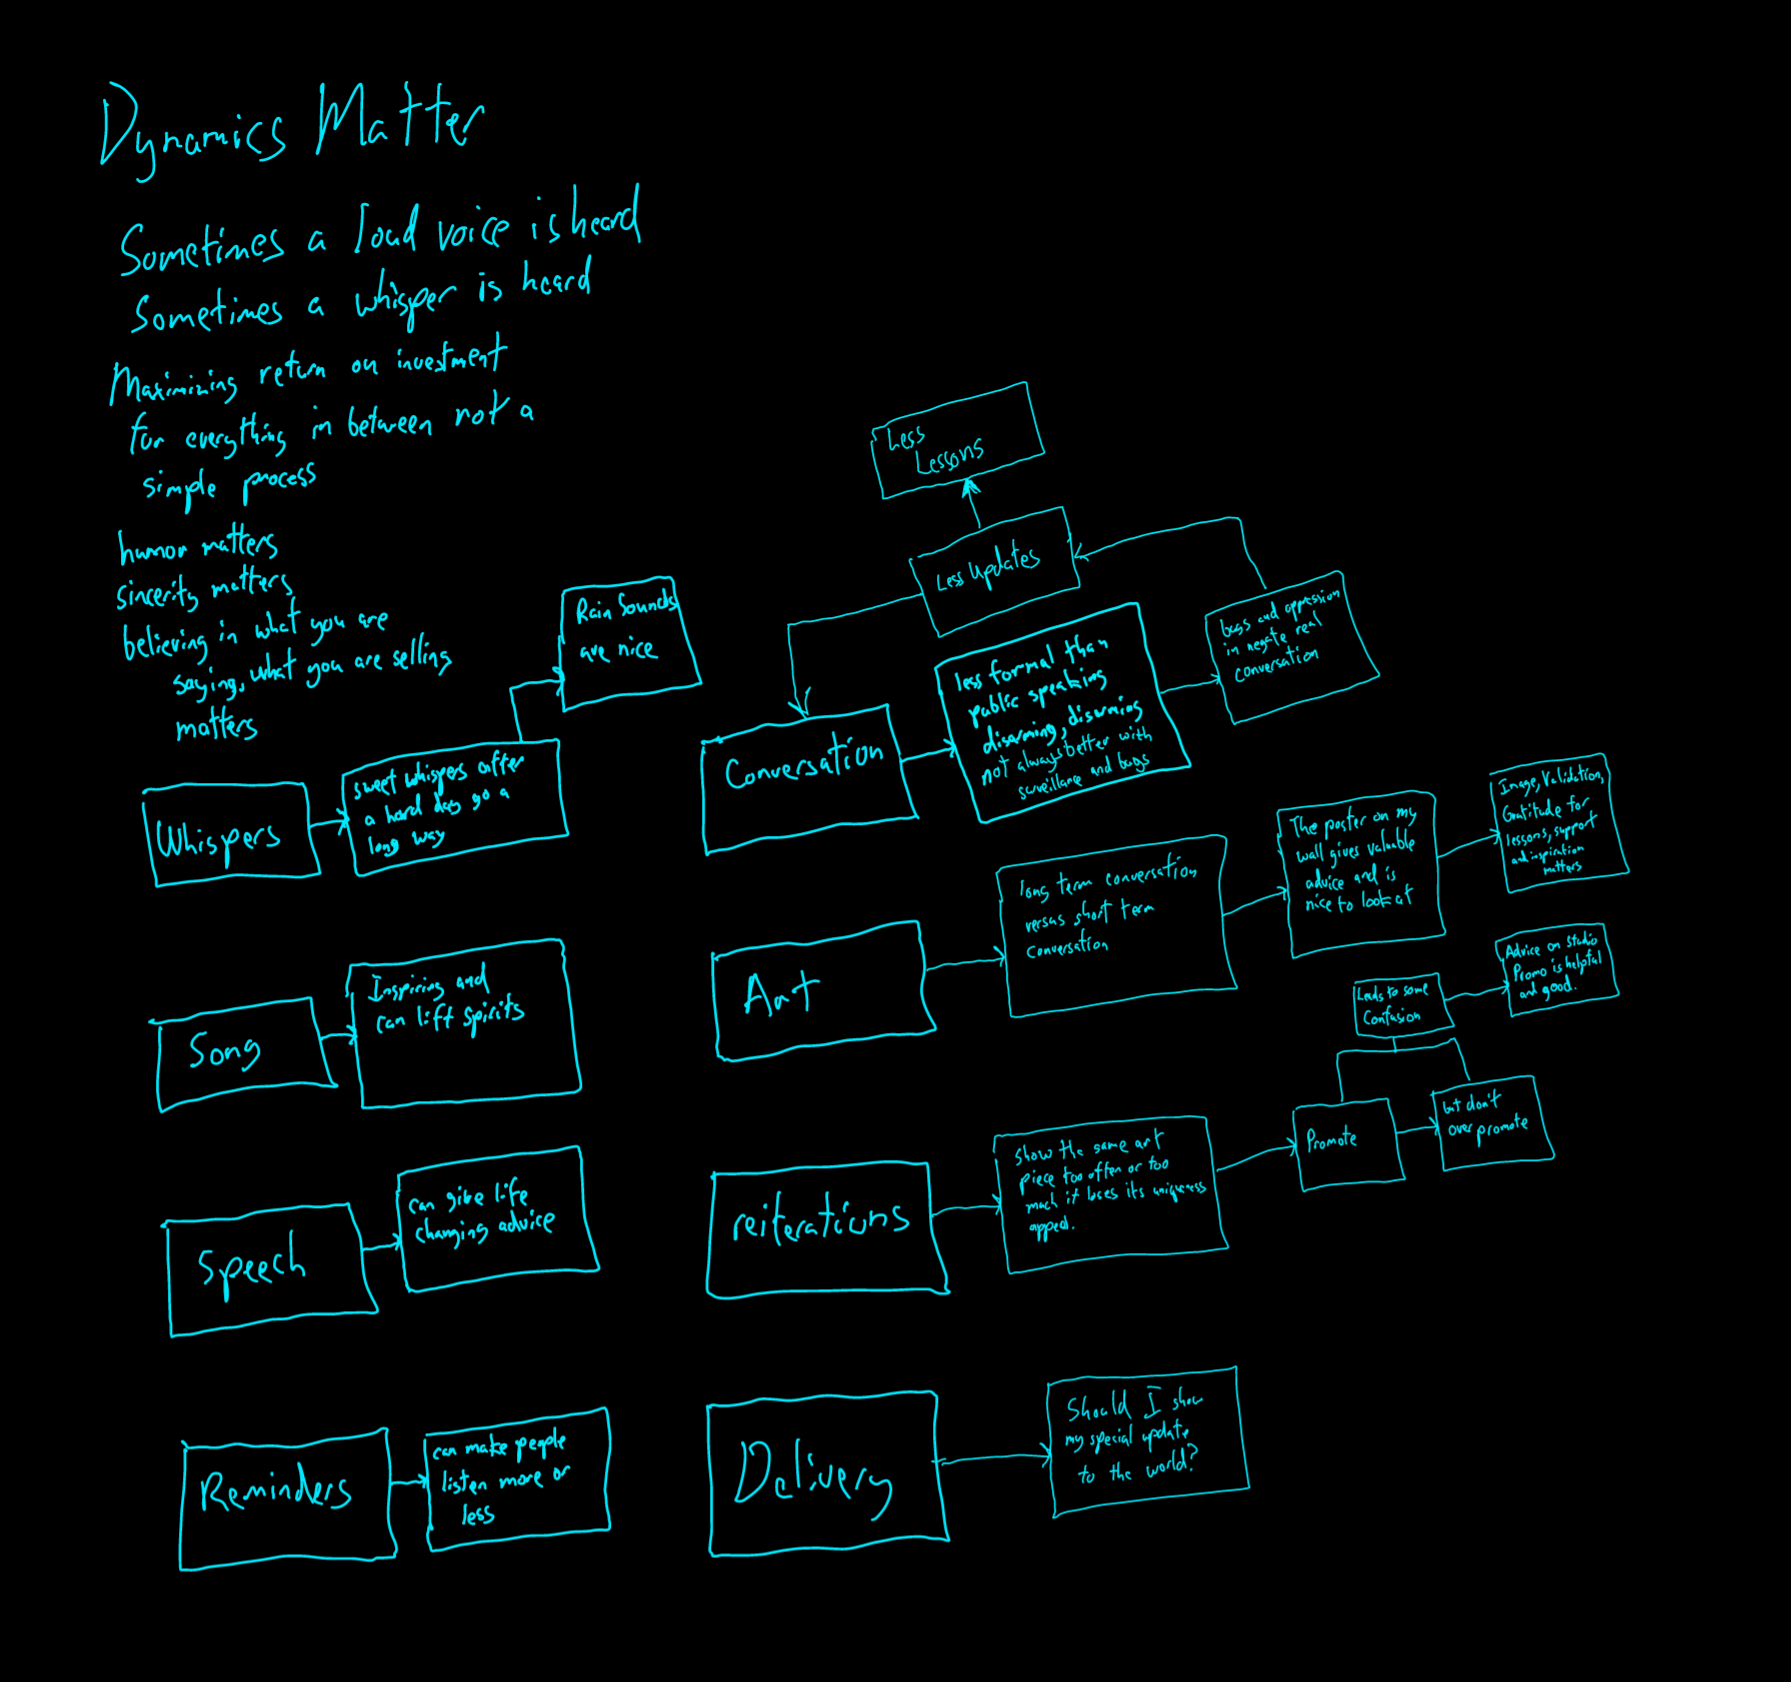 Dynamics Matter
Sometimes a loud voice is heard
Sometimes a whisper is heard
Maximizing return on investment
for everything in between not a
simple process
humor matters
sincerity matters
believing in what you are
saying, what you are selling
matters
Whispers
sweet whispers after
a hard day go a
long way
Rain Sounds
are nice
Song
Inspiring and
can lift spirits
Speech
can give life
changing advice
Reminders
can make people
listen more or
less
Conversation
less formal than
public speaking
disarming, disarming
not always better with
surveillance and bugs
bugs and oppression
in negate real
conversation
Less Updates
Less
Lessons
Art
long term conversation
versus short term
conversation
The poster on my
wall gives valuable
advice and is
nice to look at
Image, Validation,
Gratitude for
lessons, support
and inspiration
matters
reiterations
show the same art
piece too often or too
much it loses its uniqueness
appeal.
Promote
but don't
over promote
Leads to some
Confusion
Advice on studio
Promo is helpful
and good.
Delivery
Should I show
my special update
to the world?